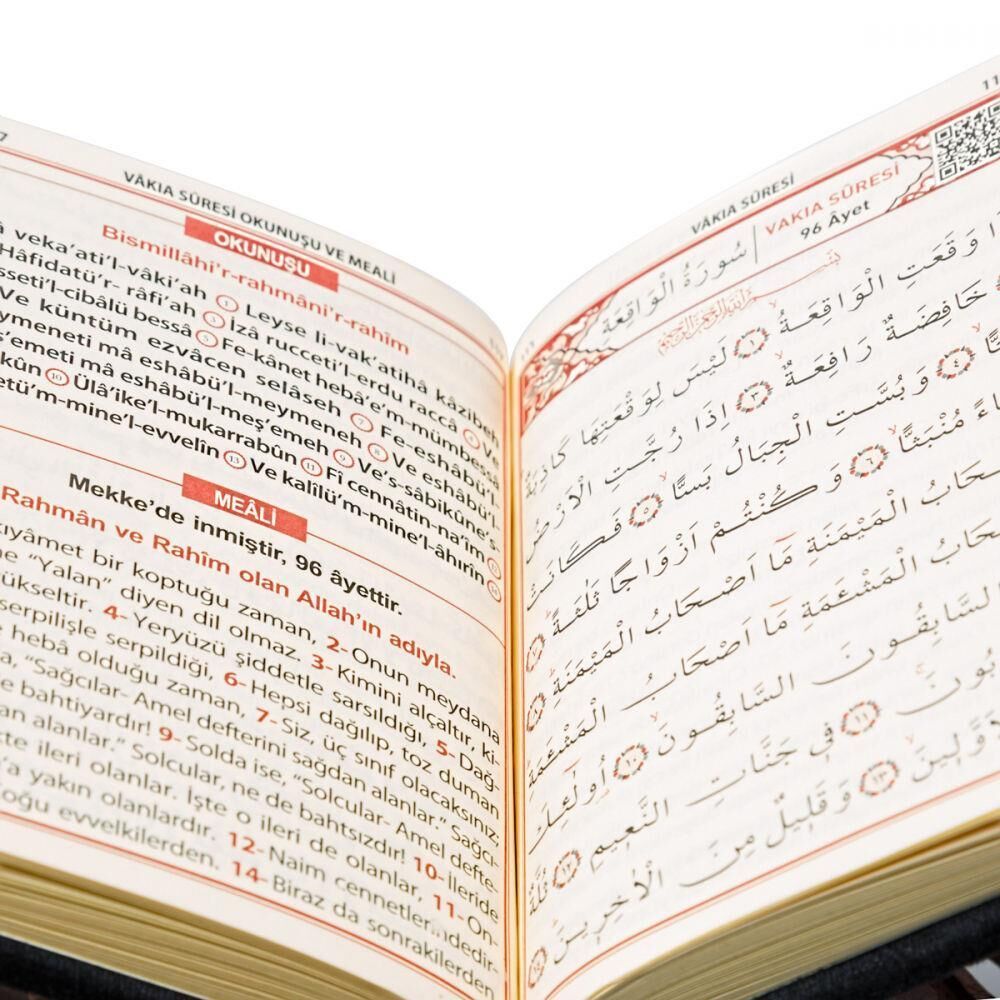 7
VÂKIA SÛRESİ OKUNUŞU VE MEALİ
OKUNUŞU
Bismillâhi'r-rahmâni'r-rahîm
â veka'ati'l-vâki'ah ① Leyse li-vak'atihâ kâzibeh
Hâfidatü'r- râfi'ah ③ İzâ rucceti'l-erdu raccâ ④ Ve
sseti'l-cibâlü bessâ ⑤ Fe-kânet hebâ'e'm-mümbessâ
Ve küntüm ezvâcen selâseh ⑦ Fe-eshâbü'l-
ymeneti mâ eshâbü'l-meymeneh ⑧ Ve eshâbü'l-
ş'emeti mâ eshâbü'l-meş'emeh ⑨ Ve's-sâbikûne's-
kûn ⑩ Ülâ'ike'l-mukarrabûn ⑪ Fî cennâtin-na'îm ⑫
etü'm-mine'l-evvelîn ⑬ Ve kalîlü'm-mine'l-âhırîn ⑭
MEÂLİ
Mekke'de inmiştir, 96 âyettir.
Rahmân ve Rahîm olan Allah'ın adıyla.
kıyâmet bir koptuğu zaman, 2- Onun meydana
ne "Yalan" diyen dil olmaz. 3- Kimini alçaltır, ki-
ükseltir. 4- Yeryüzü şiddetle sarsıldığı, 5- Dağ-
serpilişle serpildiği, 6- Hepsi dağılıp, toz duman
heba olduğu zaman, 7- Siz, üç sınıf olacaksınız;
a, "Sağcılar- Amel defterini sağdan alanlar." Sağcı-
e bahtiyardır! 9- Solda ise, "Solcular- Amel defte-
an alanlar." Solcular, ne de bahtsızdır! 10- İleride
te ileri olanlar. İşte o ileri de olanlar, 11- On-
'a yakın olanlardır. 12- Naim cennetlerindedir-
oğu evvelkilerden. 14- Biraz da sonrakilerden
11
VÂKIA SÛRESİ
VAKIA SÛRESİ
96 Âyet
سُورَةُ الْوَاقِعَةِ
بِسْمِ اللّٰهِ الرَّحْمٰنِ الرَّحِيمِ
ا وَقَعَتِ الْوَاقِعَةُ ﴿١﴾ لَيْسَ لِوَقْعَتِهَا كَاذِبَةٌ
خَافِضَةٌ رَافِعَةٌ ﴿٣﴾ اِذَا رُجَّتِ الْاَرْضُ
﴿٤﴾ وَبُسَّتِ الْجِبَالُ بَسًّا ﴿٥﴾ فَكَانَتْ
اءً مُنْبَثًّا ﴿٦﴾ وَكُنْتُمْ اَزْوَاجًا ثَلٰثَةً ﴿٧﴾
حَابُ الْمَيْمَنَةِ مَٓا اَصْحَابُ الْمَيْمَنَةِ ﴿٨﴾
حَابُ الْمَشْـَٔمَةِ مَٓا اَصْحَابُ الْمَشْـَٔمَةِ
السَّابِقُونَ السَّابِقُونَ ﴿١٠﴾ اُولٰٓئِكَ
بُونَ ﴿١١﴾ فِى جَنَّاتِ النَّعِيمِ ﴿١٢﴾ ثُلَّةٌ
وَّلِينَ ﴿١٣﴾ وَقَلِيلٌ مِنَ الْاٰخِرِينَ ﴿١٤﴾